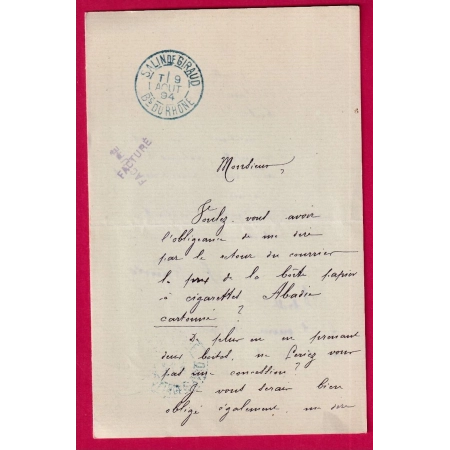 SALIN DE GIRAUD
T 9
1 AOUT
94
Bs DU RHONE
FACTURÉ
FAC
Monsieur,
Voulez-vous avoir
l'obligeance de me dire
par le retour du courrier
le prix de la boite papier
à cigarettes Abadie
cartonné ?
De plus en en prenant
deux boites, ne feriez vous
pas une concession ?
Je vous serai bien
obligé également me dire